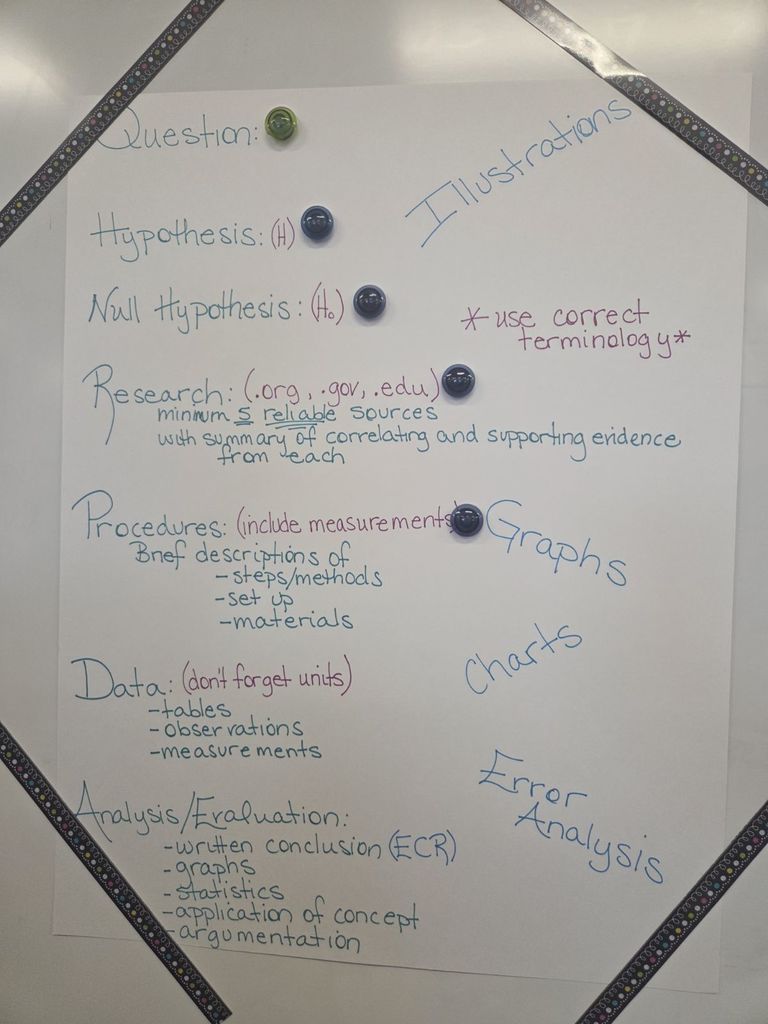 Question:
Illustrations
Hypothesis: (H)
Null Hypothesis: (H₀)
*use correct
terminology*
Research: (.org, .gov, .edu)
minimum 5 reliable sources
with summary of correlating and supporting evidence
from each
Procedures: (include measurements)
Graphs
Brief descriptions of
-steps/methods
-set up
-materials
Charts
Data: (don't forget units)
-tables
-observations
-measurements
Error
Analysis
Analysis/Evaluation:
-written conclusion (ECR)
-graphs
-statistics
-application of concept
-argumentation